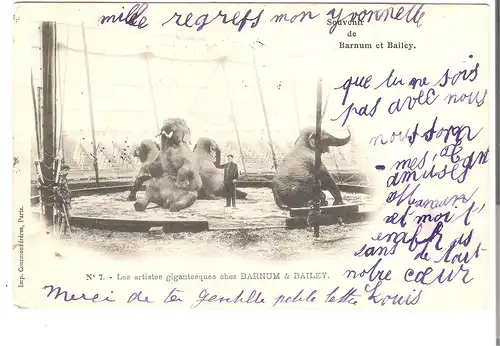 mille regrets mon yvonnette
Souvenir
de
Barnum et Bailey.
que tu ne sois
pas avec nous
nous
amuses
et moi t
sans de tout
notre cœur
Imp. Courmont Frères, Paris.
N° 7. - Les artistes gigantesques chez BARNUM & BAILEY.
Merci de ta gentille petite lettre Louis